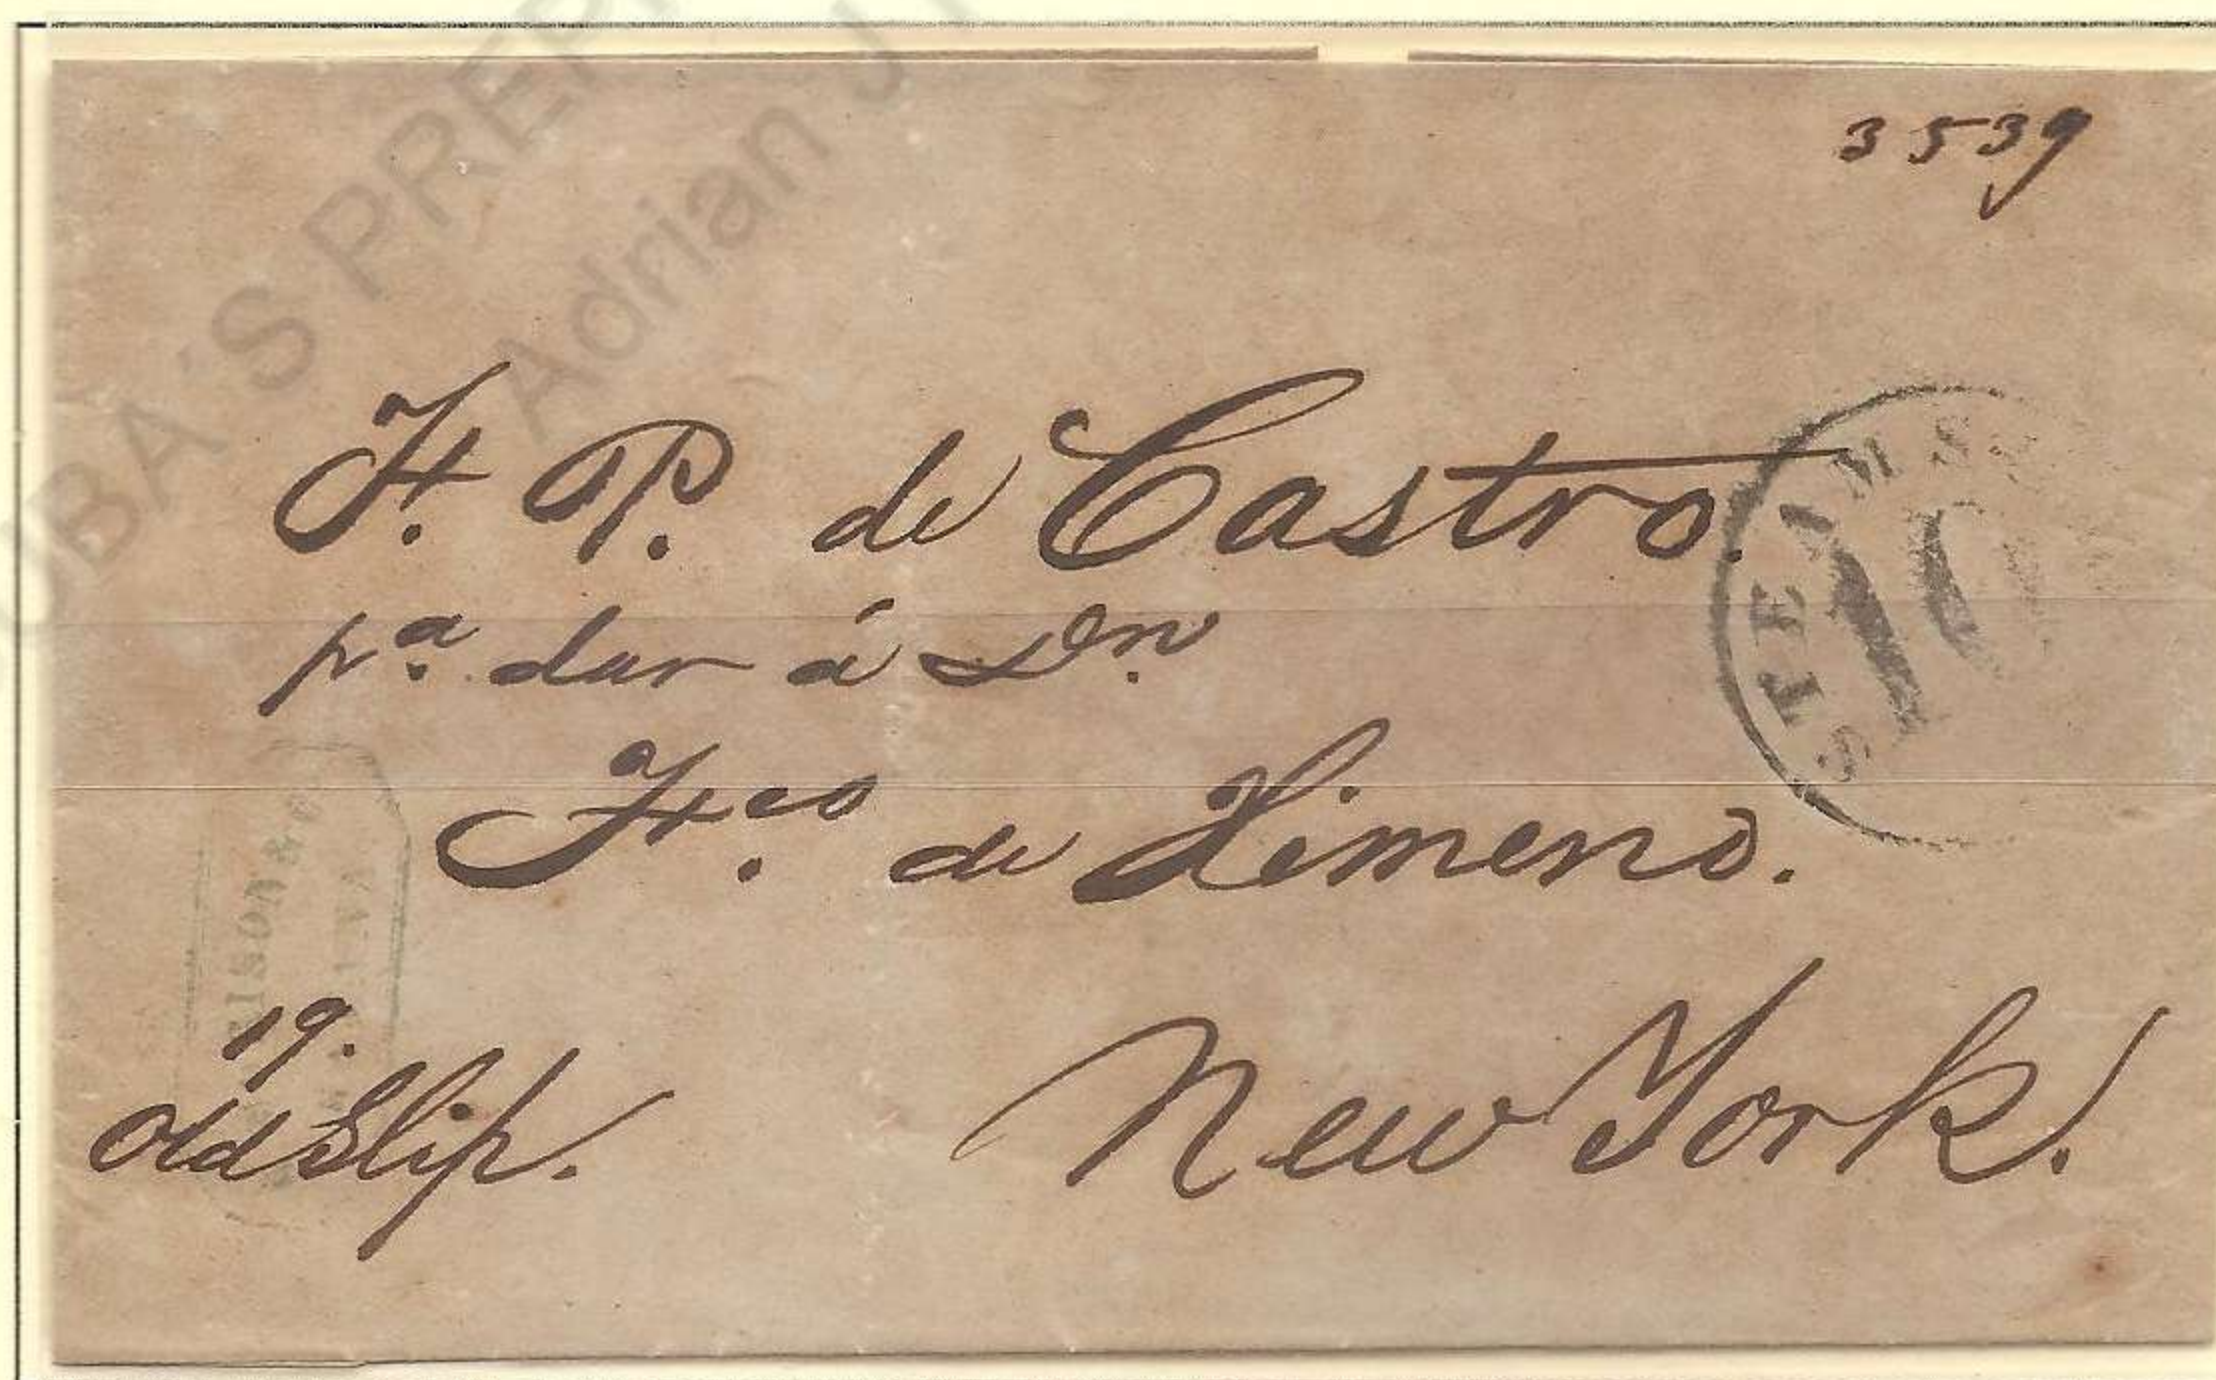 3539
H. P. de Castro.
pa. dar á Dn.
Fco. de Ximeno.
19.
Old Slip.
New York.
STEAMS
10